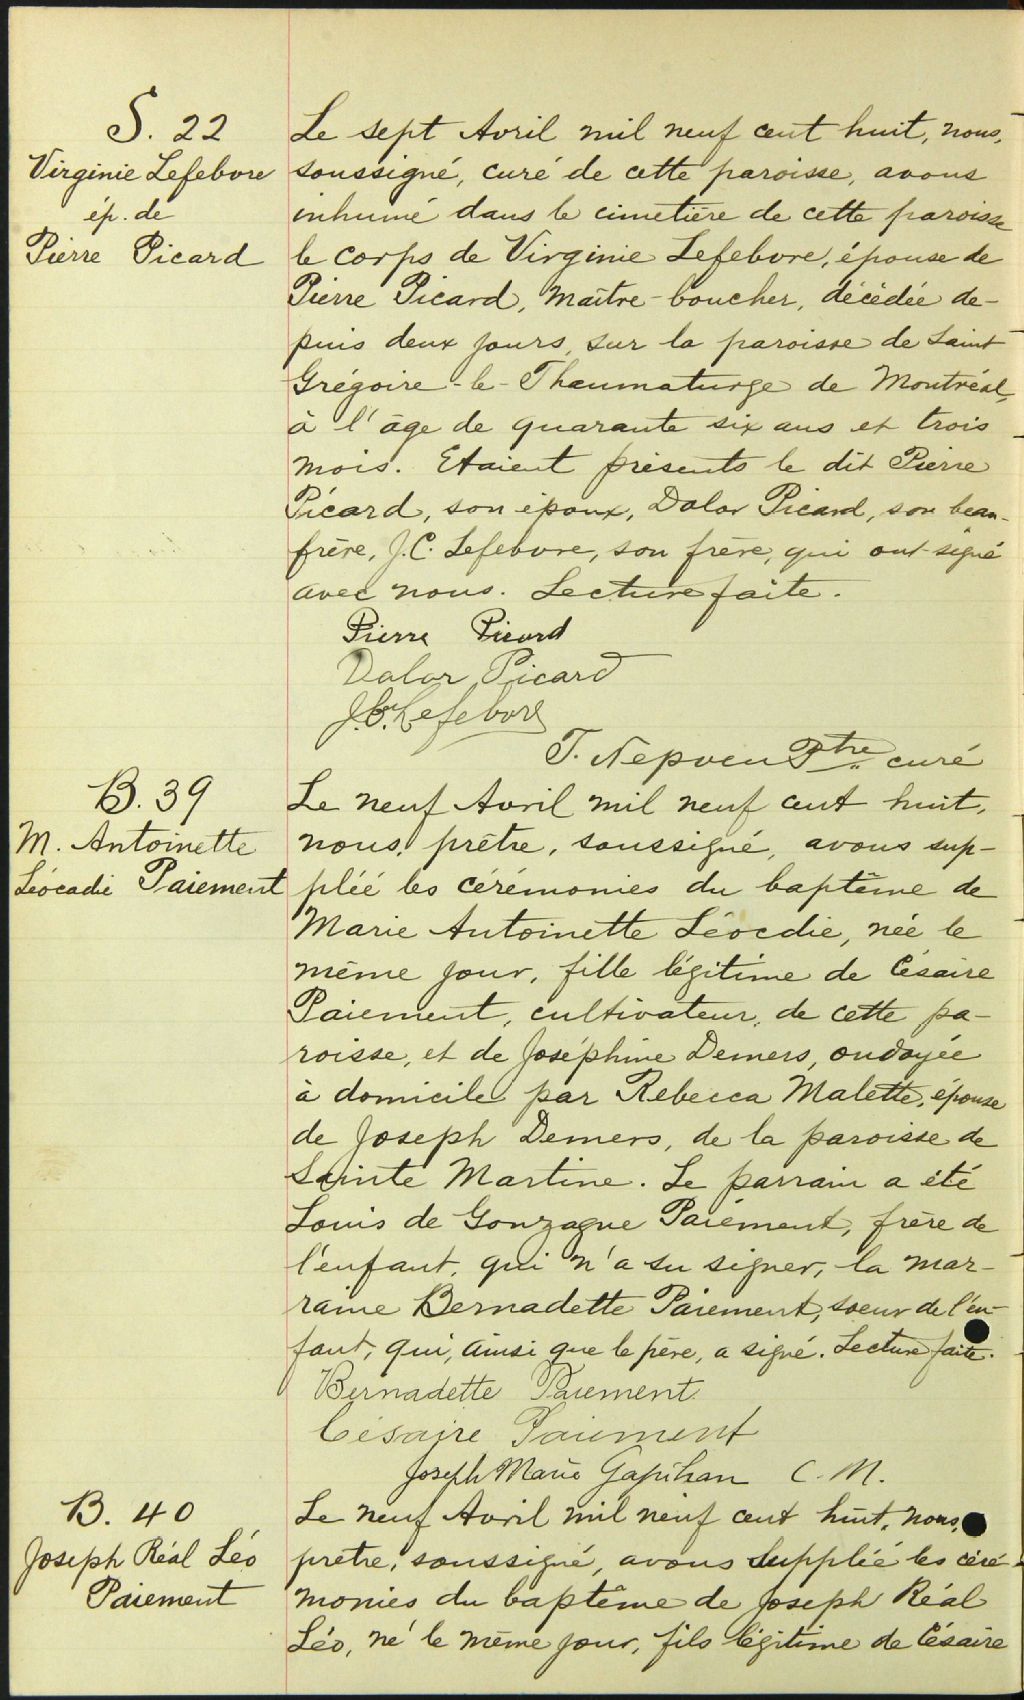 S. 22
Virginie Lefebvre
ép. de
Pierre Picard
Le sept Avril mil neuf cent huit, nous,
soussigné, curé de cette paroisse, avons
inhumé dans le cimetière de cette paroisse
le corps de Virginie Lefebvre, épouse de
Pierre Picard, Maître-boucher, décédée de-
puis deux jours, sur la paroisse de Saint
Grégoire-le-Thaumaturge de Montréal,
à l'âge de quarante six ans et trois
mois. Etaient présents le dit Pierre
Picard, son époux, Dolor Picard, son beau-
frère, J.C. Lefebvre, son frère, qui ont signé
avec nous. Lecture faite.
Pierre Picard
Dolor Picard
J.C. Lefebvre
T. Nepveu Ptre curé
B. 39
M. Antoinette
Léocadie Paiement
Le neuf Avril mil neuf cent huit,
nous, prêtre, soussigné, avons sup-
pléé les cérémonies du baptême de
Marie Antoinette Léocdie, née le
même jour, fille légitime de Césaire
Paiement, cultivateur, de cette pa-
roisse, et de Joséphine Demers, ondoyée
à domicile par Rebecca Malette, épouse
de Joseph Demers, de la paroisse de
Sainte Martine. Le parrain a été
Louis de Gonzague Paiement, frère de
l'enfant, qui n'a su signer, la mar-
raine Bernadette Paiement, soeur de l'en-
fant, qui, ainsi que le père, a signé. Lecture faite.
Bernadette Paiement
Césaire Paiement
Joseph Marie Gapihan C. M.
B. 40
Joseph Réal Léo
Paiement
Le neuf Avril mil neuf cent huit, nous,
prêtre, soussigné, avons suppléé les céré-
monies du baptême de Joseph Réal
Léo, né le même jour, fils légitime de Césaire